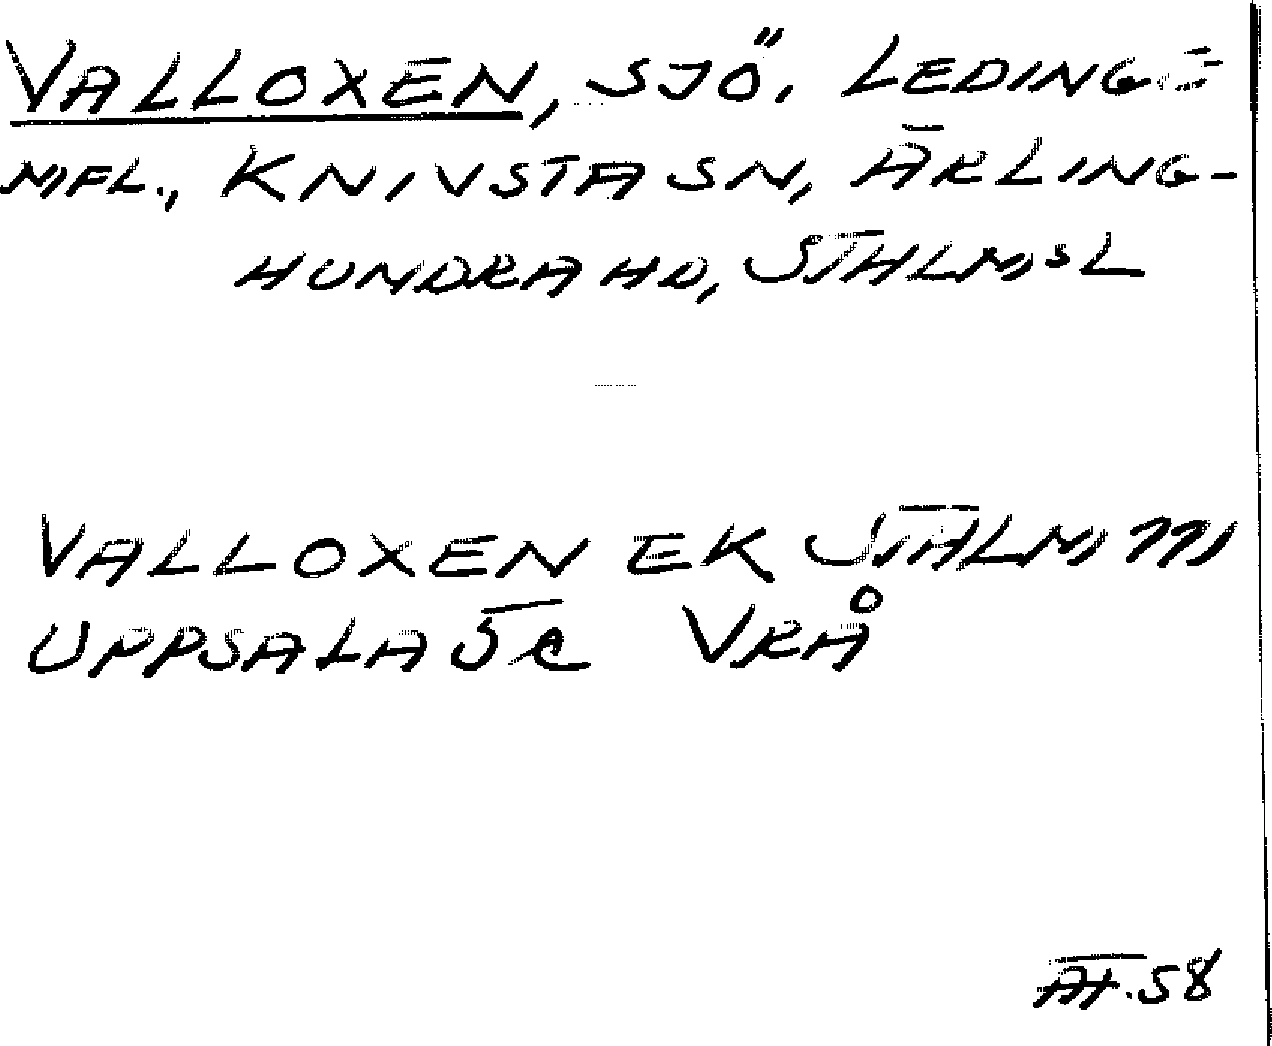 VALLOXEN, SJÖ, LEDINGE
MFL., KNIVSTA SN, ÄRLING-
HUNDRA HD, STHLMS L
VALLOXEN EK STHLM 771
UPPSALA SE VRÅ
AH.58